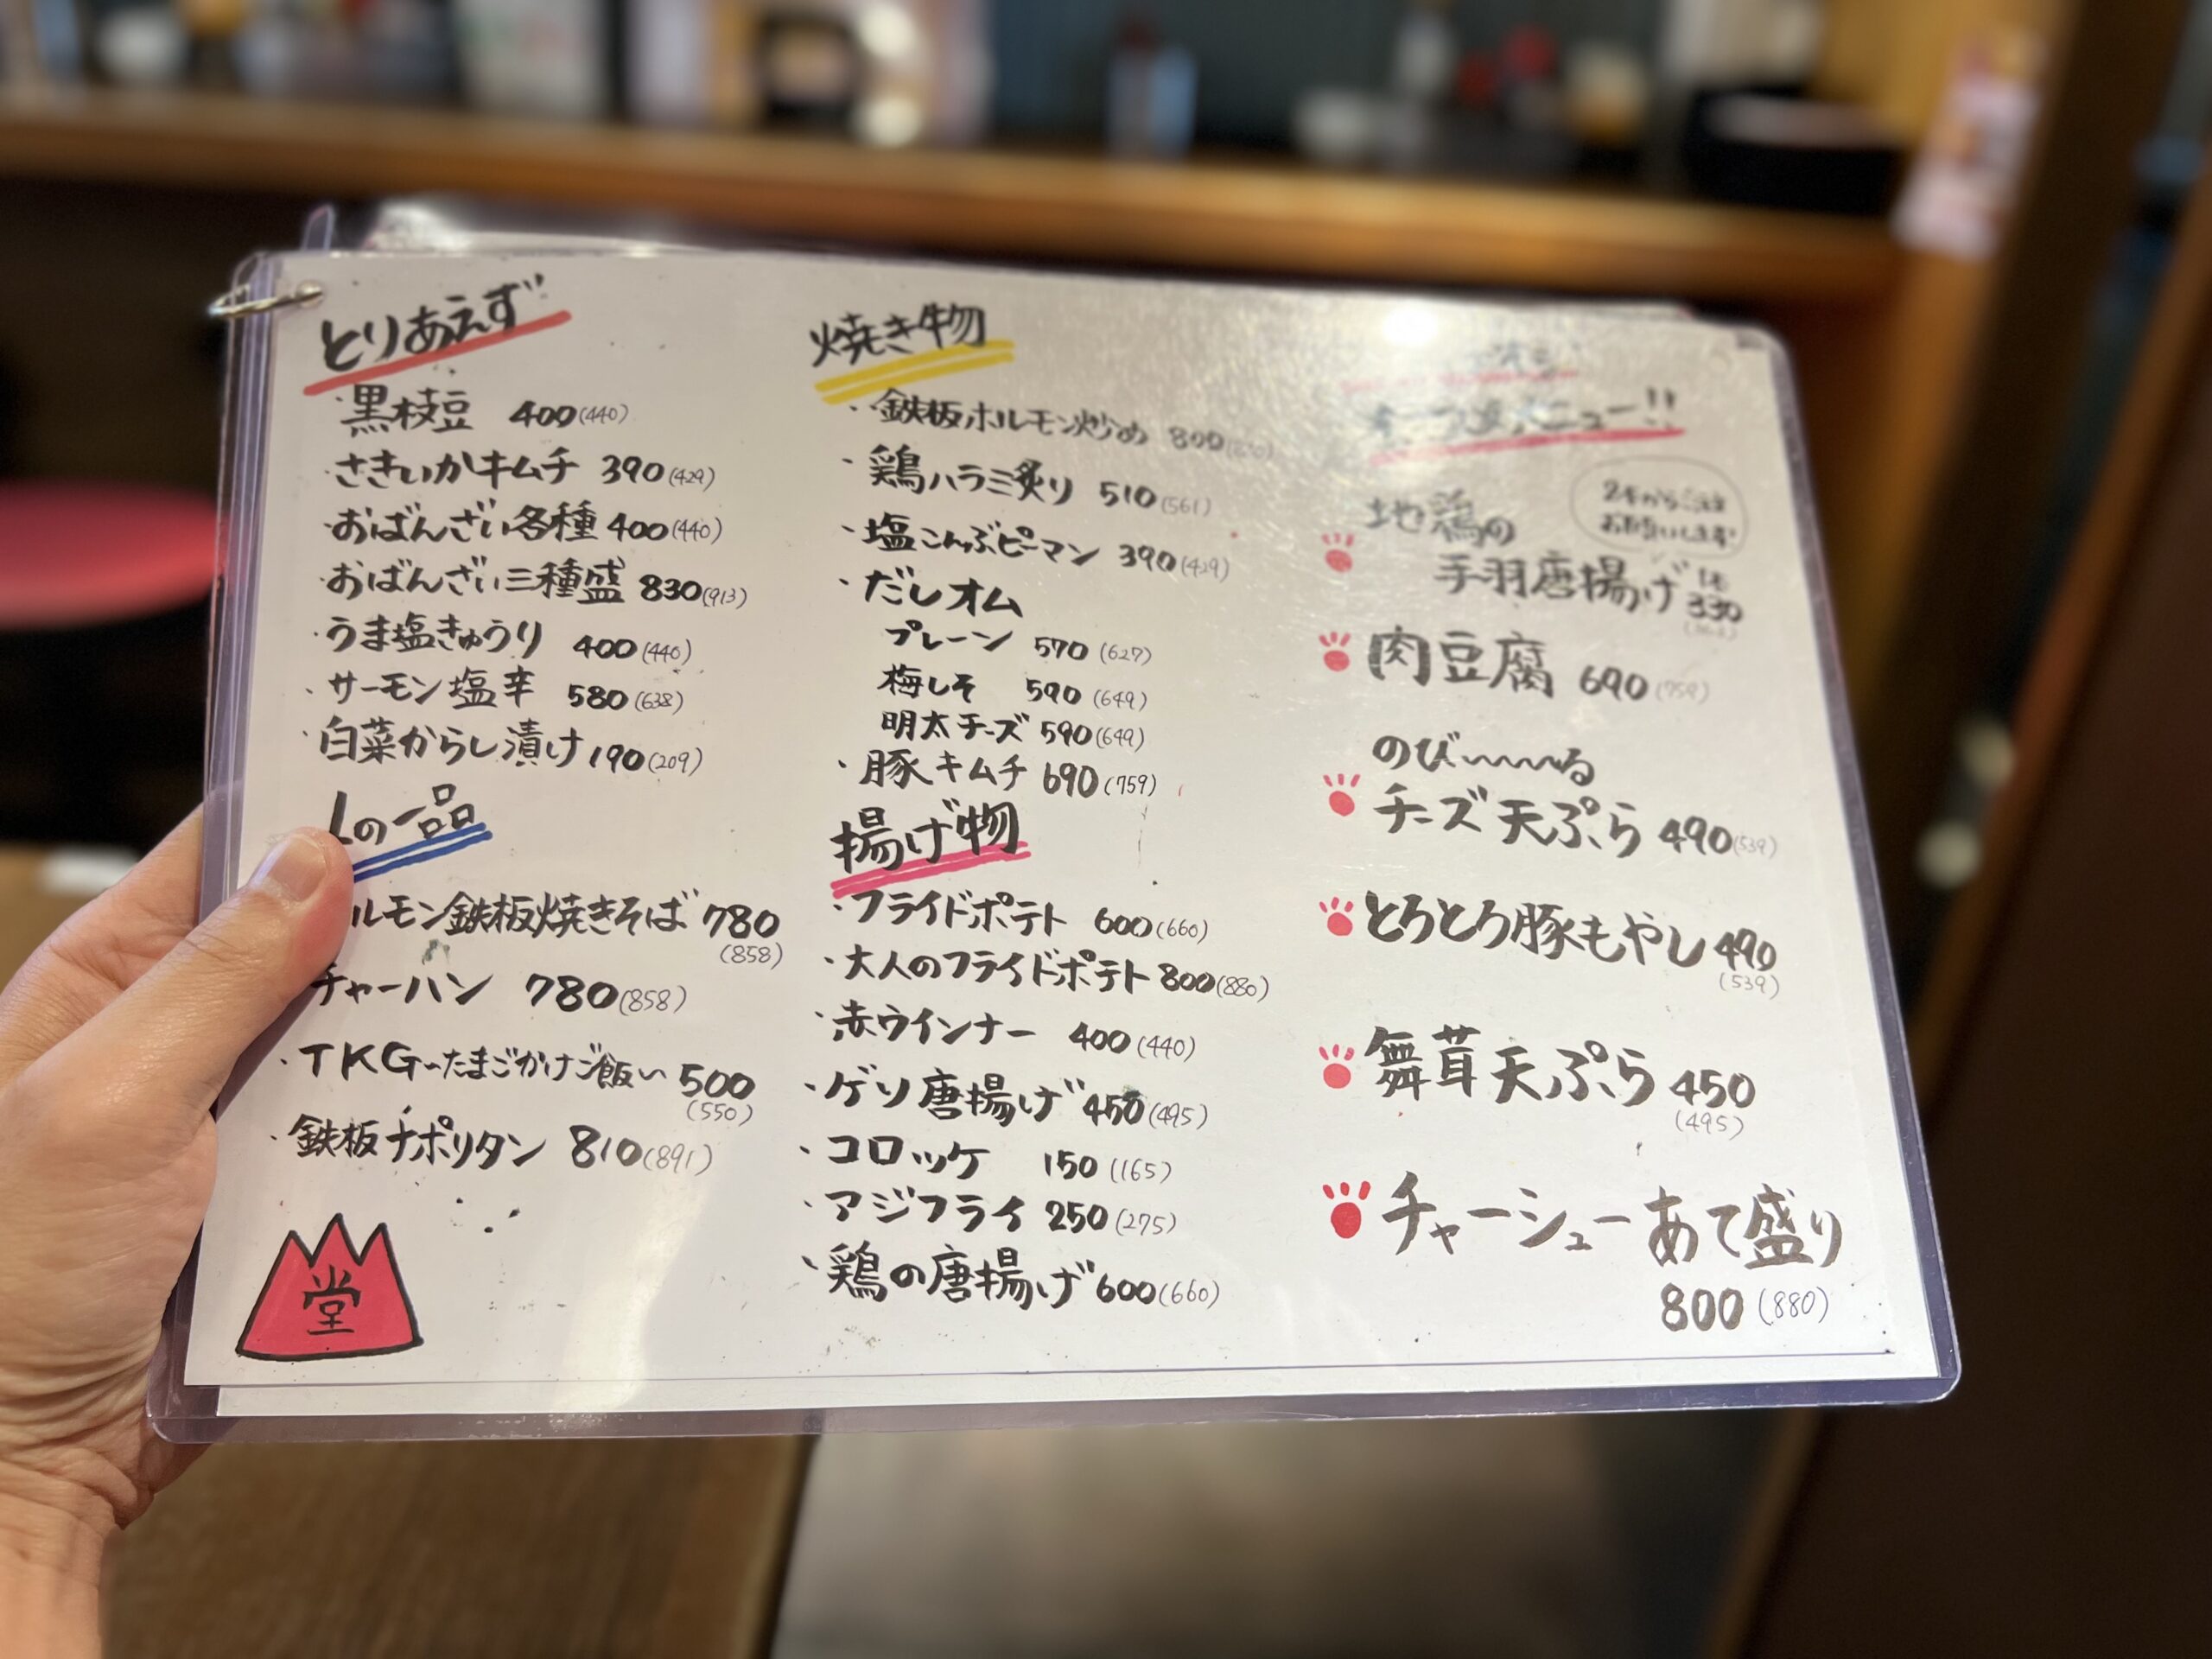 とりあえず
・黒枝豆 400(440)
・さきいかキムチ 390(429)
・おばんざい各種 400(440)
・おばんざい三種盛 830(913)
・うま塩きゅうり 400(440)
・サーモン塩辛 580(638)
・白菜からし漬け 190(209)
の一品
ルモン鉄板焼きそば 780
(858)
チャーハン 780(858)
・TKG〜たまごかけご飯〜 500
(550)
・鉄板ナポリタン 810(891)
堂
焼き物
・鉄板ホルモン炒め 800
・鶏ハラミ炙り 510(561)
・塩こんぶピーマン 390(429)
・だしオム
プレーン 570(627)
梅しそ 590(649)
明太チーズ 590(649)
・豚キムチ 690(759)
揚げ物
・フライドポテト 600(660)
・大人のフライドポテト 800(880)
・赤ウインナー 400(440)
・ゲソ唐揚げ 450(495)
・コロッケ 150(165)
・アジフライ 250(275)
・鶏の唐揚げ 600(660)
メニュー!!
2本からご注文
お願いします!
地鶏の
手羽唐揚げ 330
肉豆腐 690(759)
のび〜〜〜る
チーズ天ぷら 490(539)
とろとろ豚もやし 490
(539)
舞茸天ぷら 450
(495)
チャーシューあて盛り
800(880)